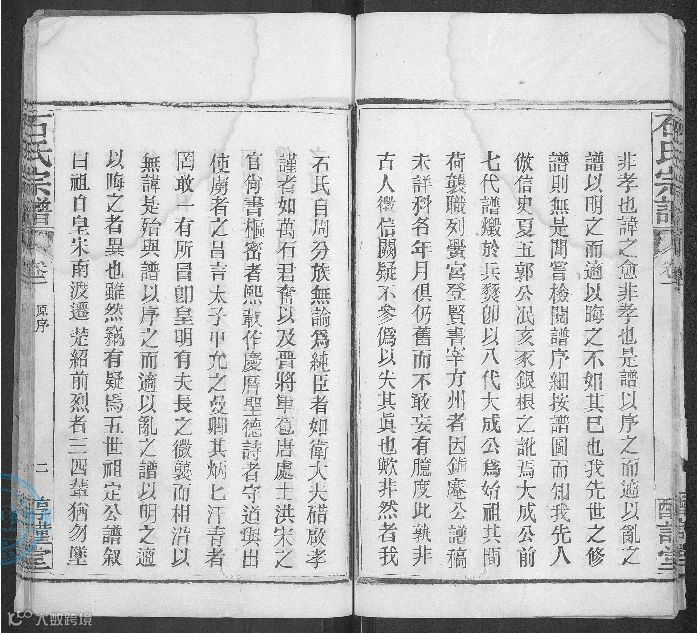 石氏宗譜
卷一
醇謹堂
非孝也諱之愈非孝也是譜以序之而適以亂之
譜以明之而適以晦之不如其已也我先世之修
譜則無是間嘗檢閱譜序細按譜圖而知我先人
倣信史夏五郭公泯亥豕銀根之訛焉大成公前
七代譜燬於兵燹卽以八代大成公為始祖其間
荷襲職列黌宮登賢書宰方州者因錦庵公譜稿
未詳科名年月俱仍舊而不敢妄有臆度此孰非
古人徵信闕疑不參偽以失其真也歟非然者我
石氏自周分族無論為純臣者如衛大夫碏啟孝
謹者如萬石君奮以及晉將軍苞唐處士洪宋之
官尚書樞密者熙載作慶曆聖德詩者守道與出
使虜者之昌言太子中允之曼卿其炳七汗青者
罔敢一有所冒卽皇明有夫長之微襲而相沿以
無諱是始與譜以序之而適以亂之譜以明之適
以晦之者異也雖然竊有疑焉五世祖定公譜叙
曰祖自皇宋南渡遷楚紹前烈者三四輩猶勿墜
石氏宗譜
卷一
原序
二
醇謹堂
大数跨境